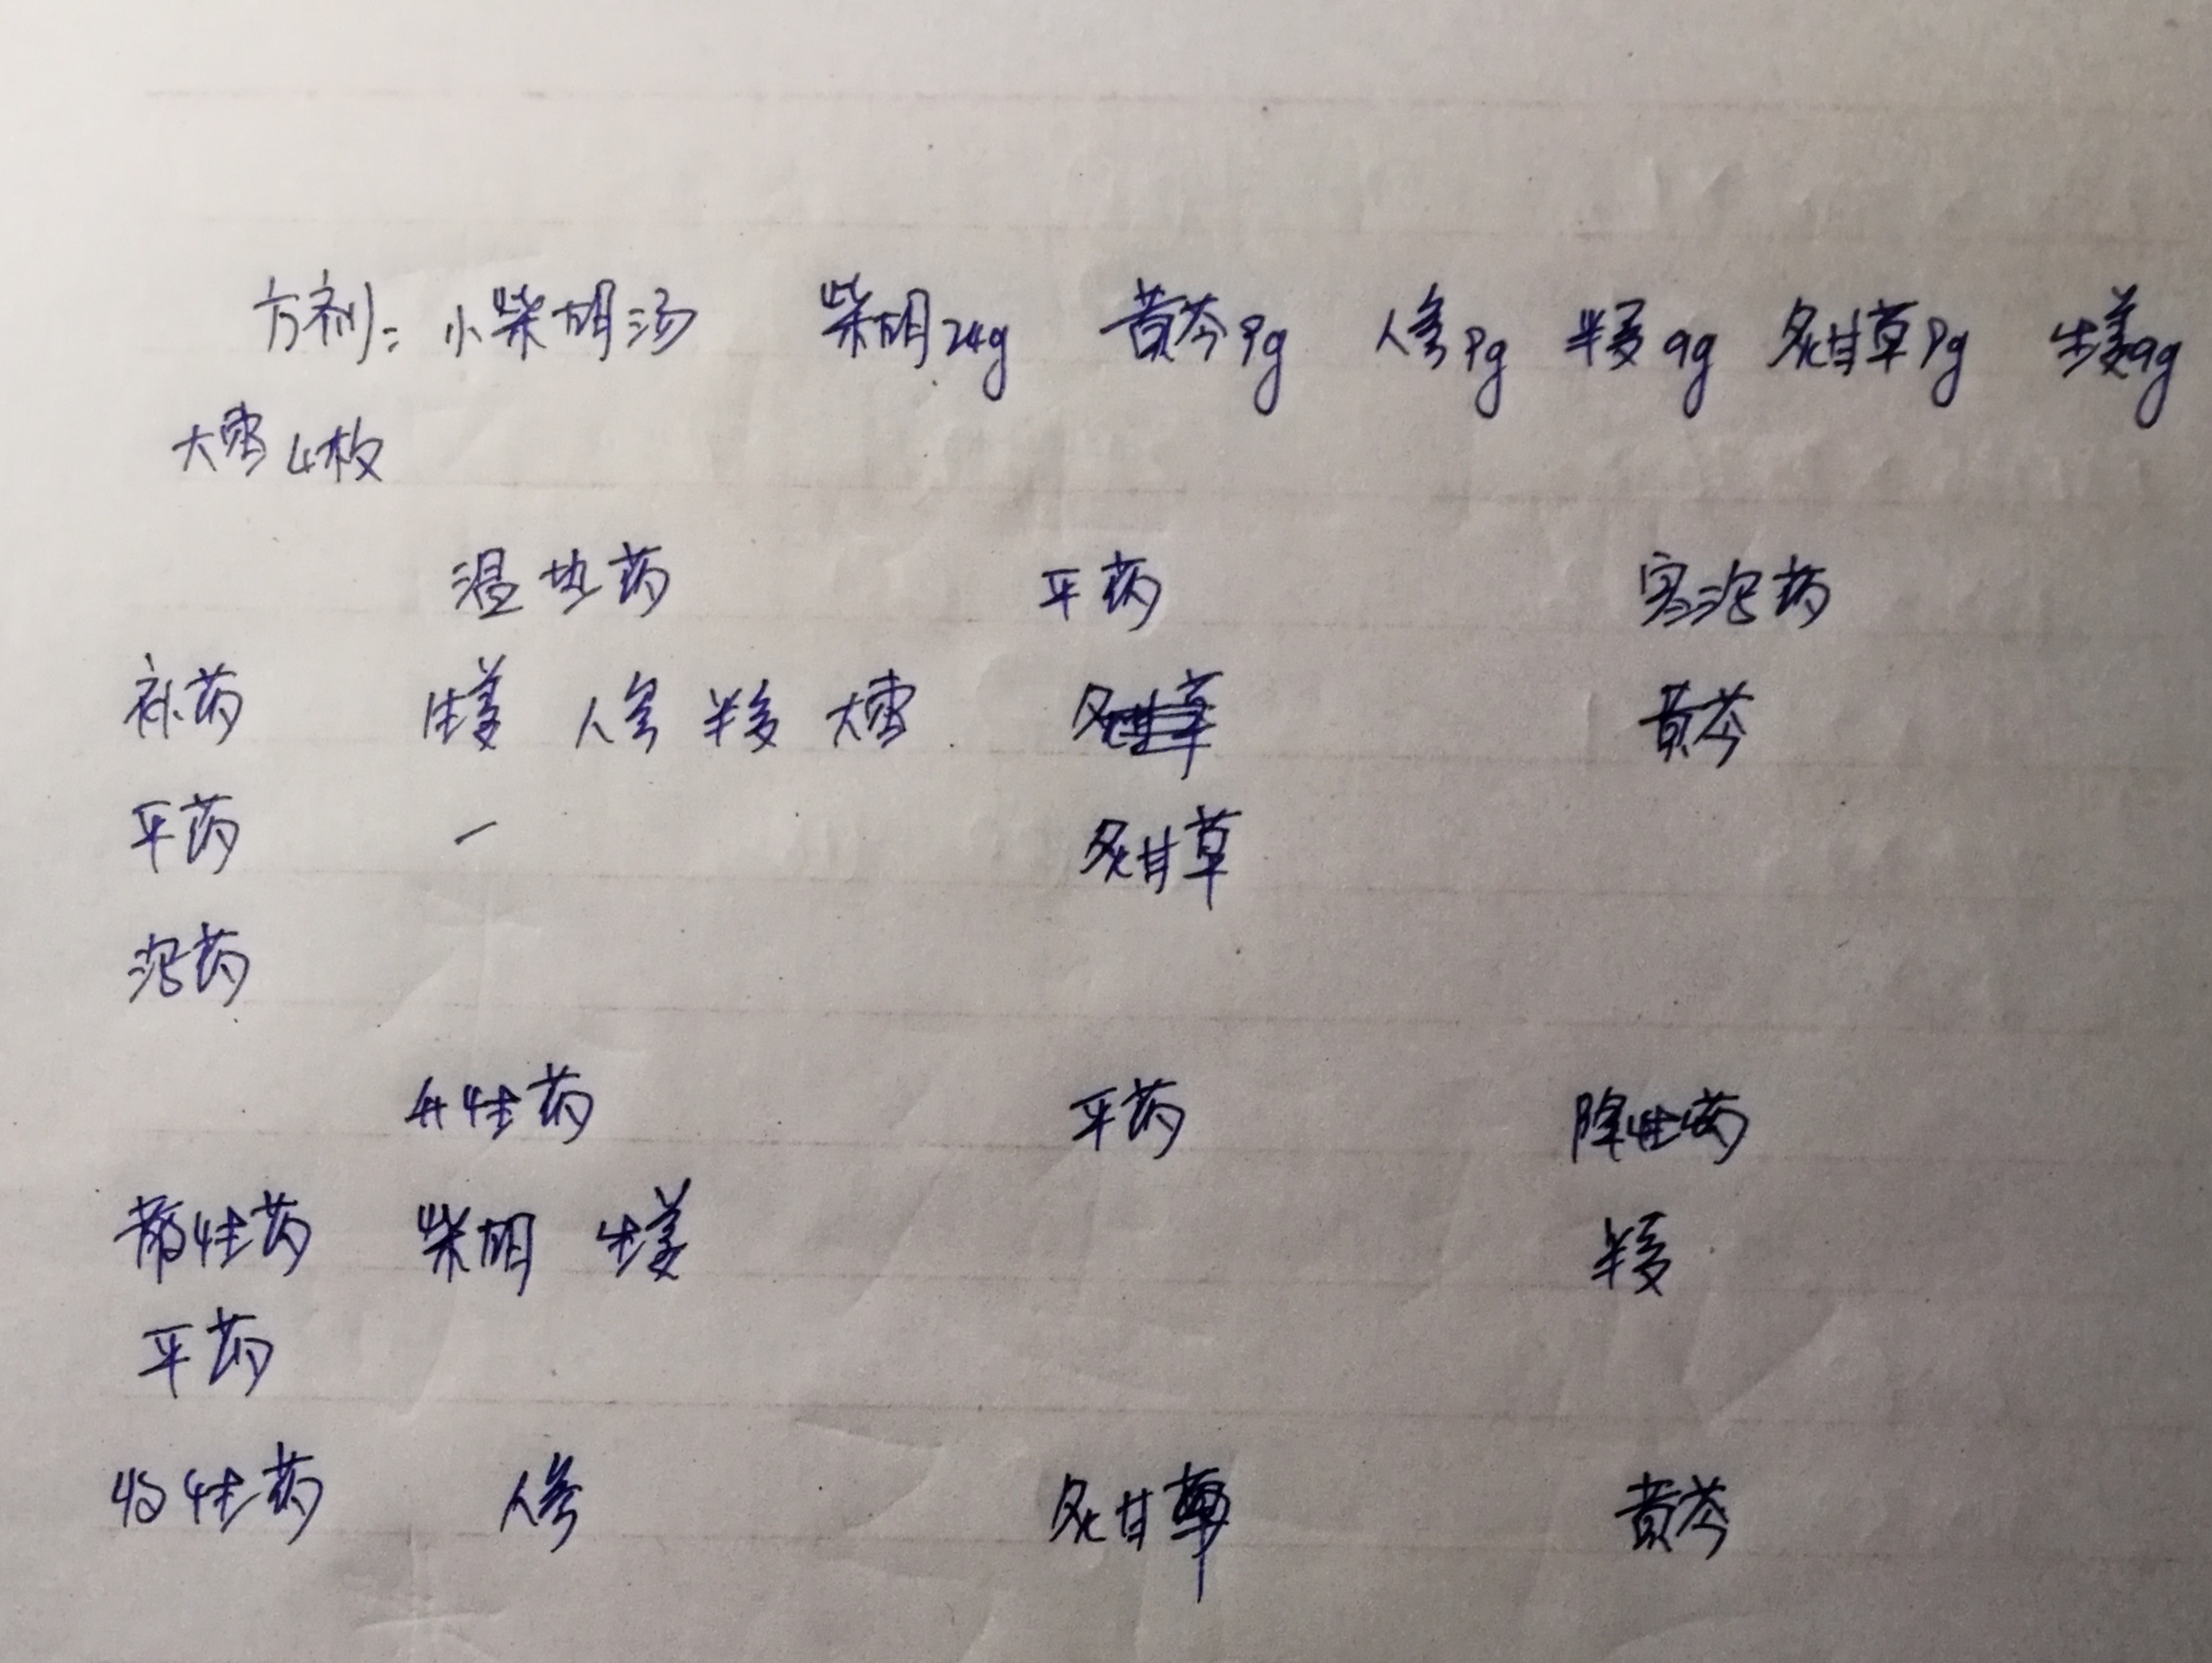 方剂：小柴胡汤 柴胡24g 黄芩9g 人参9g 半夏9g 炙甘草9g 生姜9g
大枣4枚
温热药 平药 寒凉药
补药 生姜 人参 半夏 大枣 炙甘草 黄芩
平药 一 炙甘草
泻药
升性药 平药 降性药
散性药 柴胡 生姜 半夏
平药
收性药 人参 炙甘草 黄芩